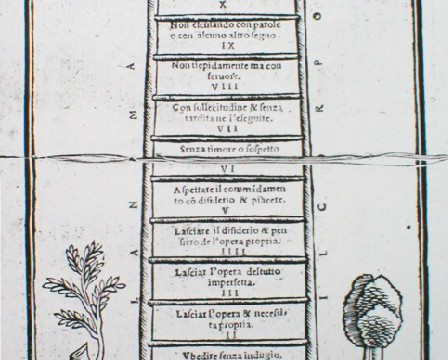 X
Non escusando con parole
e con alcuno altro segno
IX
Non tiepidamente ma con
feruore.
VIII
Con sollecitudine & senza
tardita ne l'eseguite.
VII
Senza timore o sospetto
VI
Aspettare il comandamen
to cõ disiderio & piacere.
V
Lasciare il disiderio & pen
siero de l'opera propria.
IIII
Lasciar l'opera del tutto
imperfetta.
III
Lasciar l'opera & necessi
ta propria.
II
Vbedire senza indugio.
L A N A M A
I L C O R P O